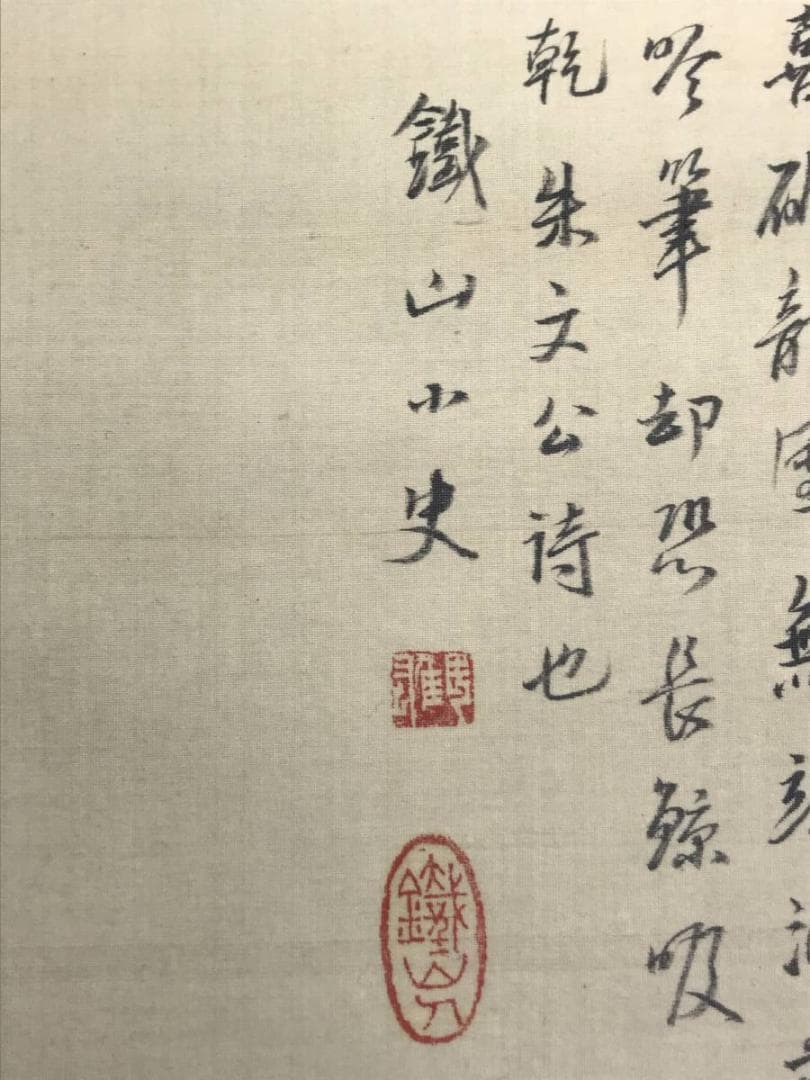 喜龍無
吟筆却恐長鯨吸
乾朱文公詩也
鐵山小史
鐵山人